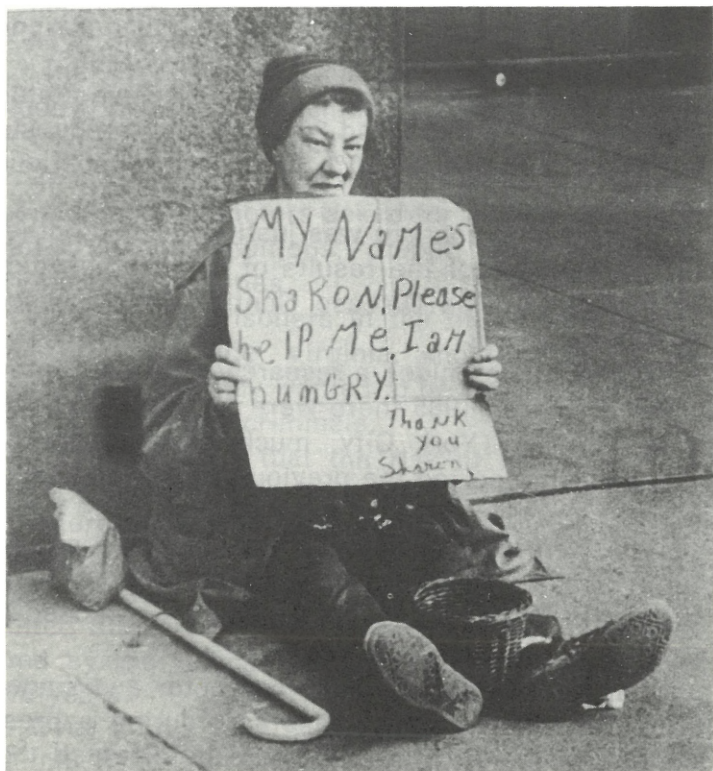 MY NaMe's
ShaRoN. Please
help Me. I aM
hunGRY.
ThaNK
you
Sharon.